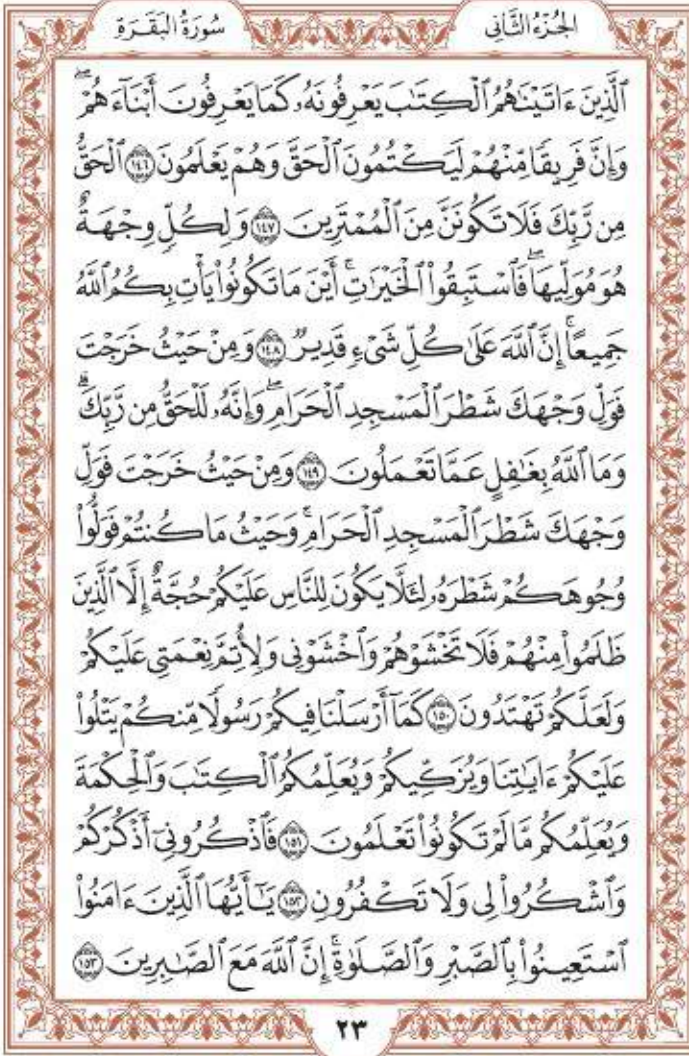 سُورَةُ الْبَقَرَةِ
الْجُزْءُ الثَّانِي
ٱلَّذِينَ ءَاتَيْنَٰهُمُ ٱلْكِتَٰبَ يَعْرِفُونَهُۥ كَمَا يَعْرِفُونَ أَبْنَآءَهُمْۖ
وَإِنَّ فَرِيقًا مِّنْهُمْ لَيَكْتُمُونَ ٱلْحَقَّ وَهُمْ يَعْلَمُونَ ١٤٦ ٱلْحَقُّ
مِن رَّبِّكَ فَلَا تَكُونَنَّ مِنَ ٱلْمُمْتَرِينَ ١٤٧ وَلِكُلٍّ وِجْهَةٌ
هُوَ مُوَلِّيهَاۖ فَٱسْتَبِقُوا۟ ٱلْخَيْرَٰتِۚ أَيْنَ مَا تَكُونُوا۟ يَأْتِ بِكُمُ ٱللَّهُ
جَمِيعًاۚ إِنَّ ٱللَّهَ عَلَىٰ كُلِّ شَىْءٍ قَدِيرٌ ١٤٨ وَمِنْ حَيْثُ خَرَجْتَ
فَوَلِّ وَجْهَكَ شَطْرَ ٱلْمَسْجِدِ ٱلْحَرَامِۖ وَإِنَّهُۥ لَلْحَقُّ مِن رَّبِّكَۗ
وَمَا ٱللَّهُ بِغَٰفِلٍ عَمَّا تَعْمَلُونَ ١٤٩ وَمِنْ حَيْثُ خَرَجْتَ فَوَلِّ
وَجْهَكَ شَطْرَ ٱلْمَسْجِدِ ٱلْحَرَامِۚ وَحَيْثُ مَا كُنتُمْ فَوَلُّوا۟
وُجُوهَكُمْ شَطْرَهُۥ لِئَلَّا يَكُونَ لِلنَّاسِ عَلَيْكُمْ حُجَّةٌ إِلَّا ٱلَّذِينَ
ظَلَمُوا۟ مِنْهُمْ فَلَا تَخْشَوْهُمْ وَٱخْشَوْنِى وَلِأُتِمَّ نِعْمَتِى عَلَيْكُمْ
وَلَعَلَّكُمْ تَهْتَدُونَ ١٥٠ كَمَآ أَرْسَلْنَا فِيكُمْ رَسُولًا مِّنكُمْ يَتْلُوا۟
عَلَيْكُمْ ءَايَٰتِنَا وَيُزَكِّيكُمْ وَيُعَلِّمُكُمُ ٱلْكِتَٰبَ وَٱلْحِكْمَةَ
وَيُعَلِّمُكُم مَّا لَمْ تَكُونُوا۟ تَعْلَمُونَ ١٥١ فَٱذْكُرُونِىٓ أَذْكُرْكُمْ
وَٱشْكُرُوا۟ لِى وَلَا تَكْفُرُونِ ١٥٢ يَٰٓأَيُّهَا ٱلَّذِينَ ءَامَنُوا۟
ٱسْتَعِينُوا۟ بِٱلصَّبْرِ وَٱلصَّلَوٰةِۚ إِنَّ ٱللَّهَ مَعَ ٱلصَّٰبِرِينَ ١٥٣
٢٣